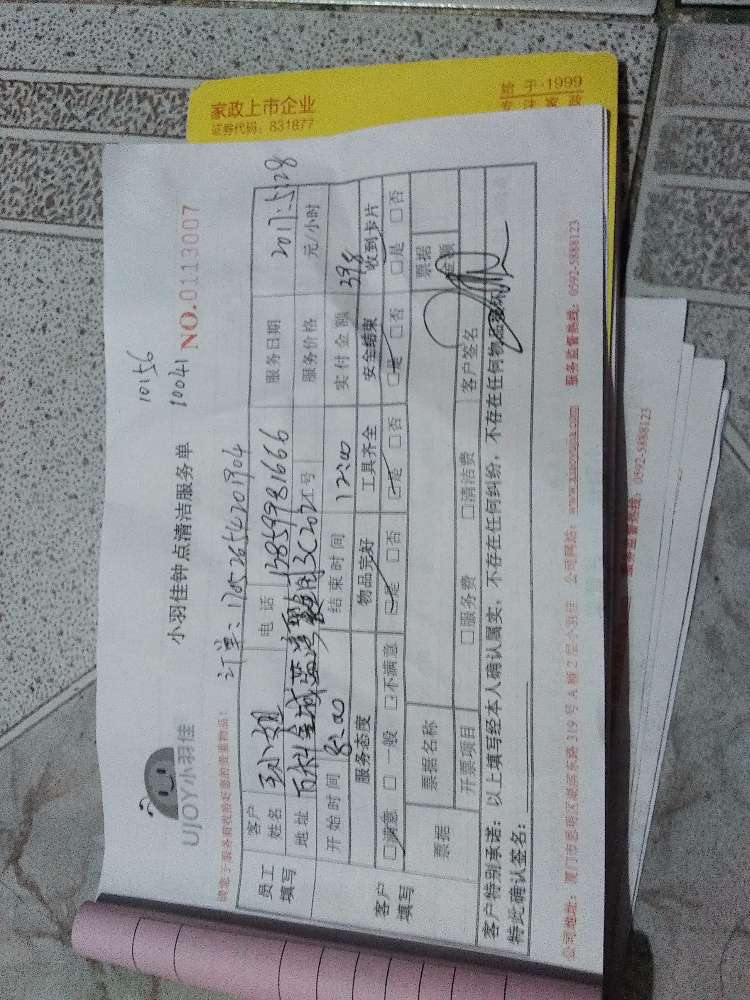 家政上市企业
证券代码：831877
始于·1999
专注家政
10156
10041
UJOY小羽佳
小羽佳钟点清洁服务单
NO.0113007
请您于服务前收拾好您的贵重物品！
订单：17052654201904
员工填写
客户姓名
王小姐
电话
13859981666
服务日期
2017.5.28
地址
万科金域蓝湾
3C202
工号
服务价格
元/小时
开始时间
8:00
结束时间
12:00
实付金额
398
客户填写
服务态度
物品完好
工具齐全
安全结束
收到卡片
□满意 □一般 □不满意
□是 □否
□是 □否
□是 □否
□是 □否
票据
票据名称
票据金额
开票项目
□服务费 □清洁费
客户签名
客户特别承诺：以上填写经本人确认属实，不存在任何纠纷，不存在任何物品
特此确认签名：
公司地址：厦门市思明区湖滨东路319号A幢2层小羽佳 公司网站：www.xiaoyujia.com 服务监督热线：0592-5888123
服务监督热线：0592-5888123